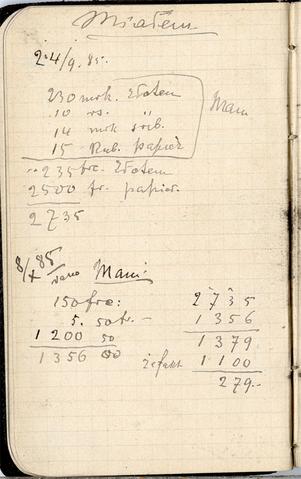 Miałem
24/9. 85.
230 mrk. Złotem
10 rs. "
14 mrk srib.
15 Rub. papier
Mam
235 frc. Złotem
2500 fr. papier.
2735
8/X 85
dano Mani
150 frc:
5. 50 fr. —
1 200 50
1 356 00
2 735
1 356
1 379
1 100
279.—